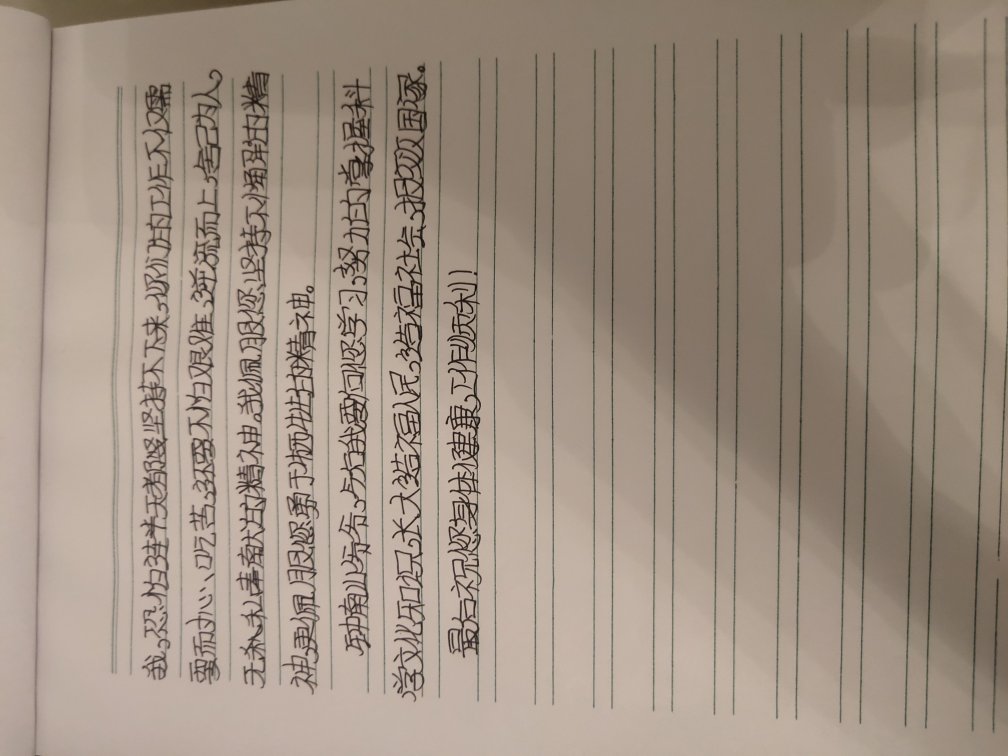 我，恐怕连半天都难坚持下来，你们的工作不仅需
要耐心、吃苦，还要不怕艰难，逆流而上，舍己为人，
无私奉献的精神。我佩服您，坚持不懈的精
神，更佩服您勇于牺牲的精神。
钟南山爷爷，今后我要向您学习，努力的掌握科
学文化知识，长大造福人民，造福社会，报效国家。
最后祝您身体健康，工作顺利！